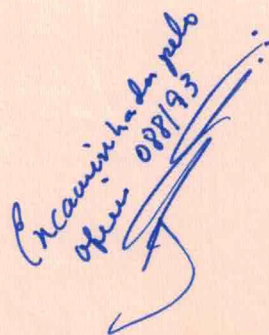 Encaminhada pelo
ofício 088/93